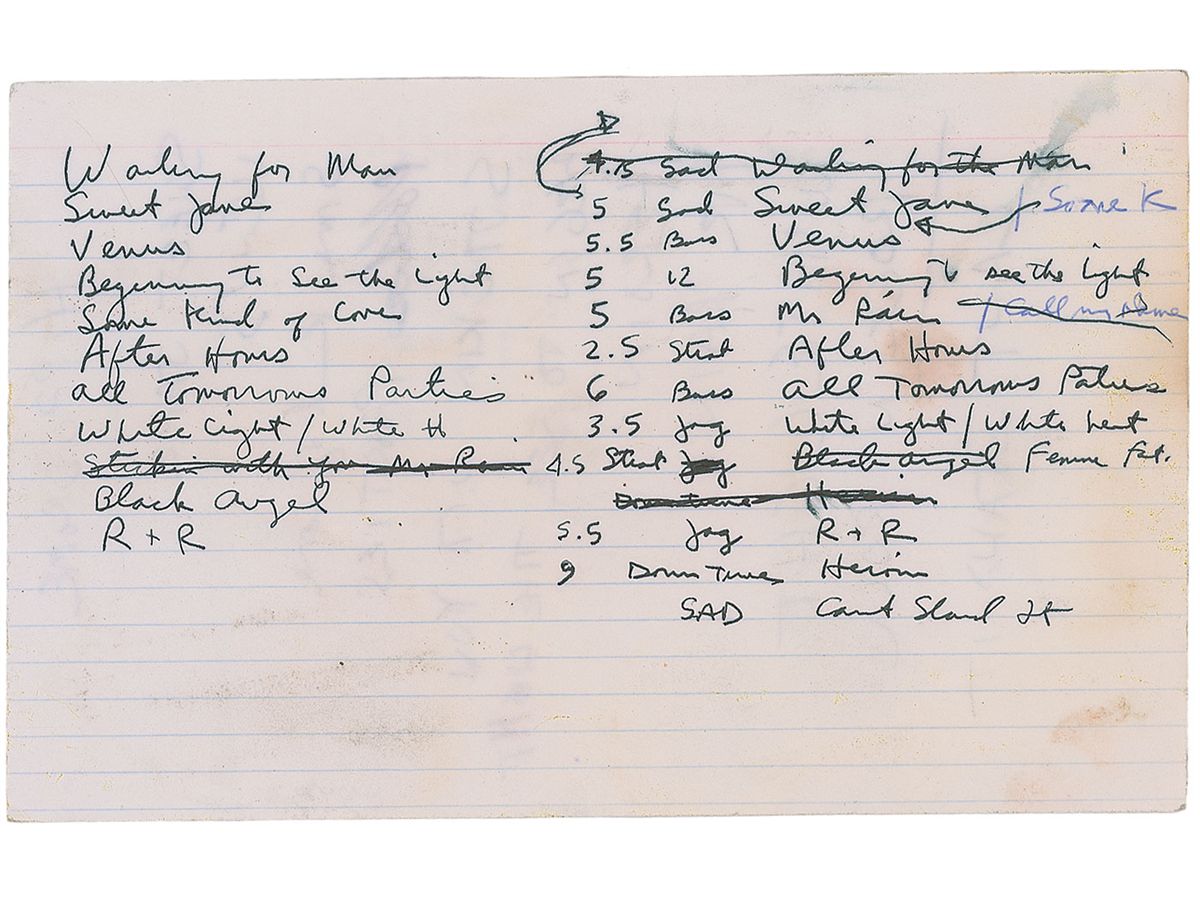 Waiting for Man
Sweet Jane
Venus
Beginning to See the Light
Some Kind of Love
After Hours
all Tomorrows Parties
White Light / White H
Stickin with You Mr Rain
Black Angel
R + R
4.15 Sad Waiting for the Man
5 Sad Sweet Jane / Some K
5.5 Bass Venus
5 12 Beginning to see the Light
5 Bass Mr Rain / Call my Name
2.5 Strat After Hours
6 Bass all Tomorrows Paties
3.5 Jag White Light / White heat
4.5 Strat Jag Black angel Femme Fat.
Downtunes Heroin
5.5 Jag R + R
9 Down Tunes Heroin
SAD Cant Stand It